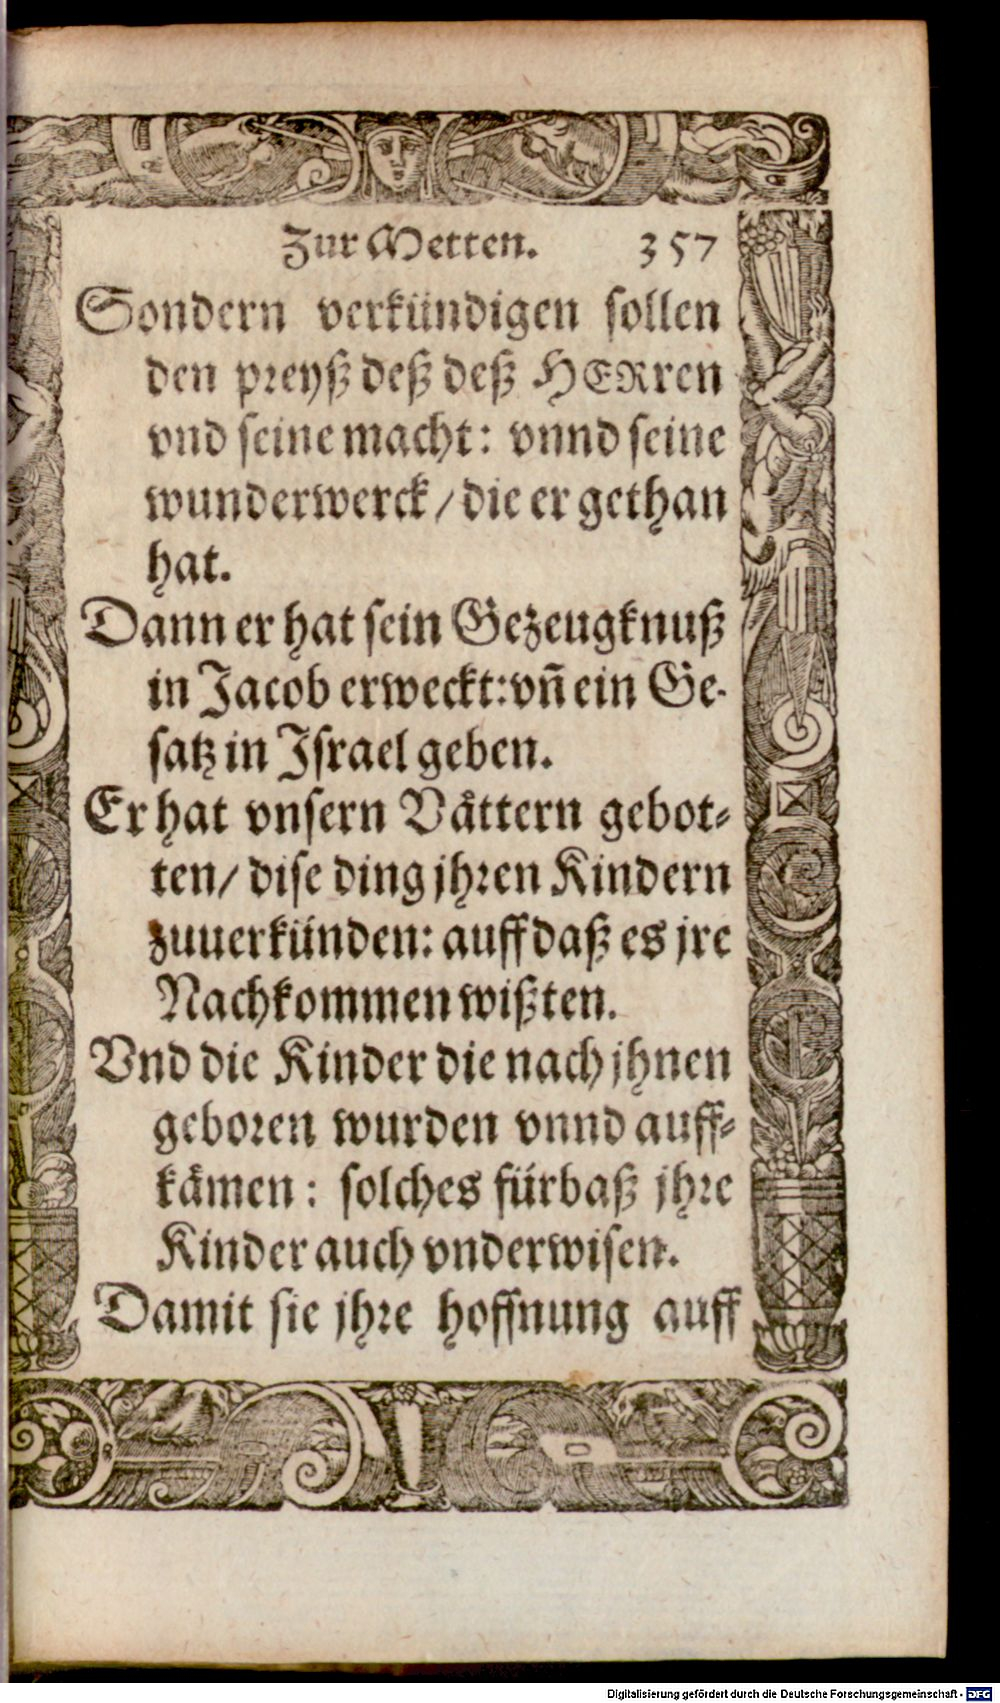 Zur Metten. 357
Sondern verkündigen sollen
den preyß deß deß HERren
vnd seine macht: vnnd seine
wunderwerck / die er gethan
hat.
Dann er hat sein Gezeugknuß
in Jacob erweckt: vñ ein Ge-
satz in Israel geben.
Er hat vnsern Våttern gebot-
ten / dise ding jhren Kindern
zuuerkünden: auff daß es jre
Nachkommen wißten.
Vnd die Kinder die nach jhnen
geboren wurden vnnd auff-
kämen: solches fürbaß jhre
Kinder auch vnderwisen.
Damit sie jhre hoffnung auff
Digitalisierung gefördert durch die Deutsche Forschungsgemeinschaft - DFG